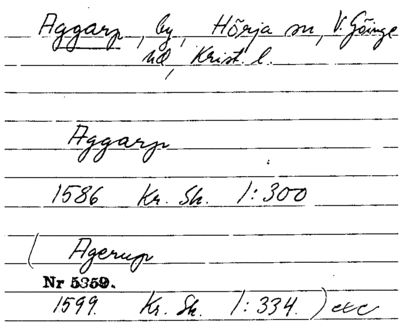 Aggarp, by, Hörja sn, V. Göinge
hd, Krist. l.
Aggarp
1586 Kr. Sk. 1:300
( Agerup
Nr 5359.
1599. Kr. Sk. 1:334. ) etc